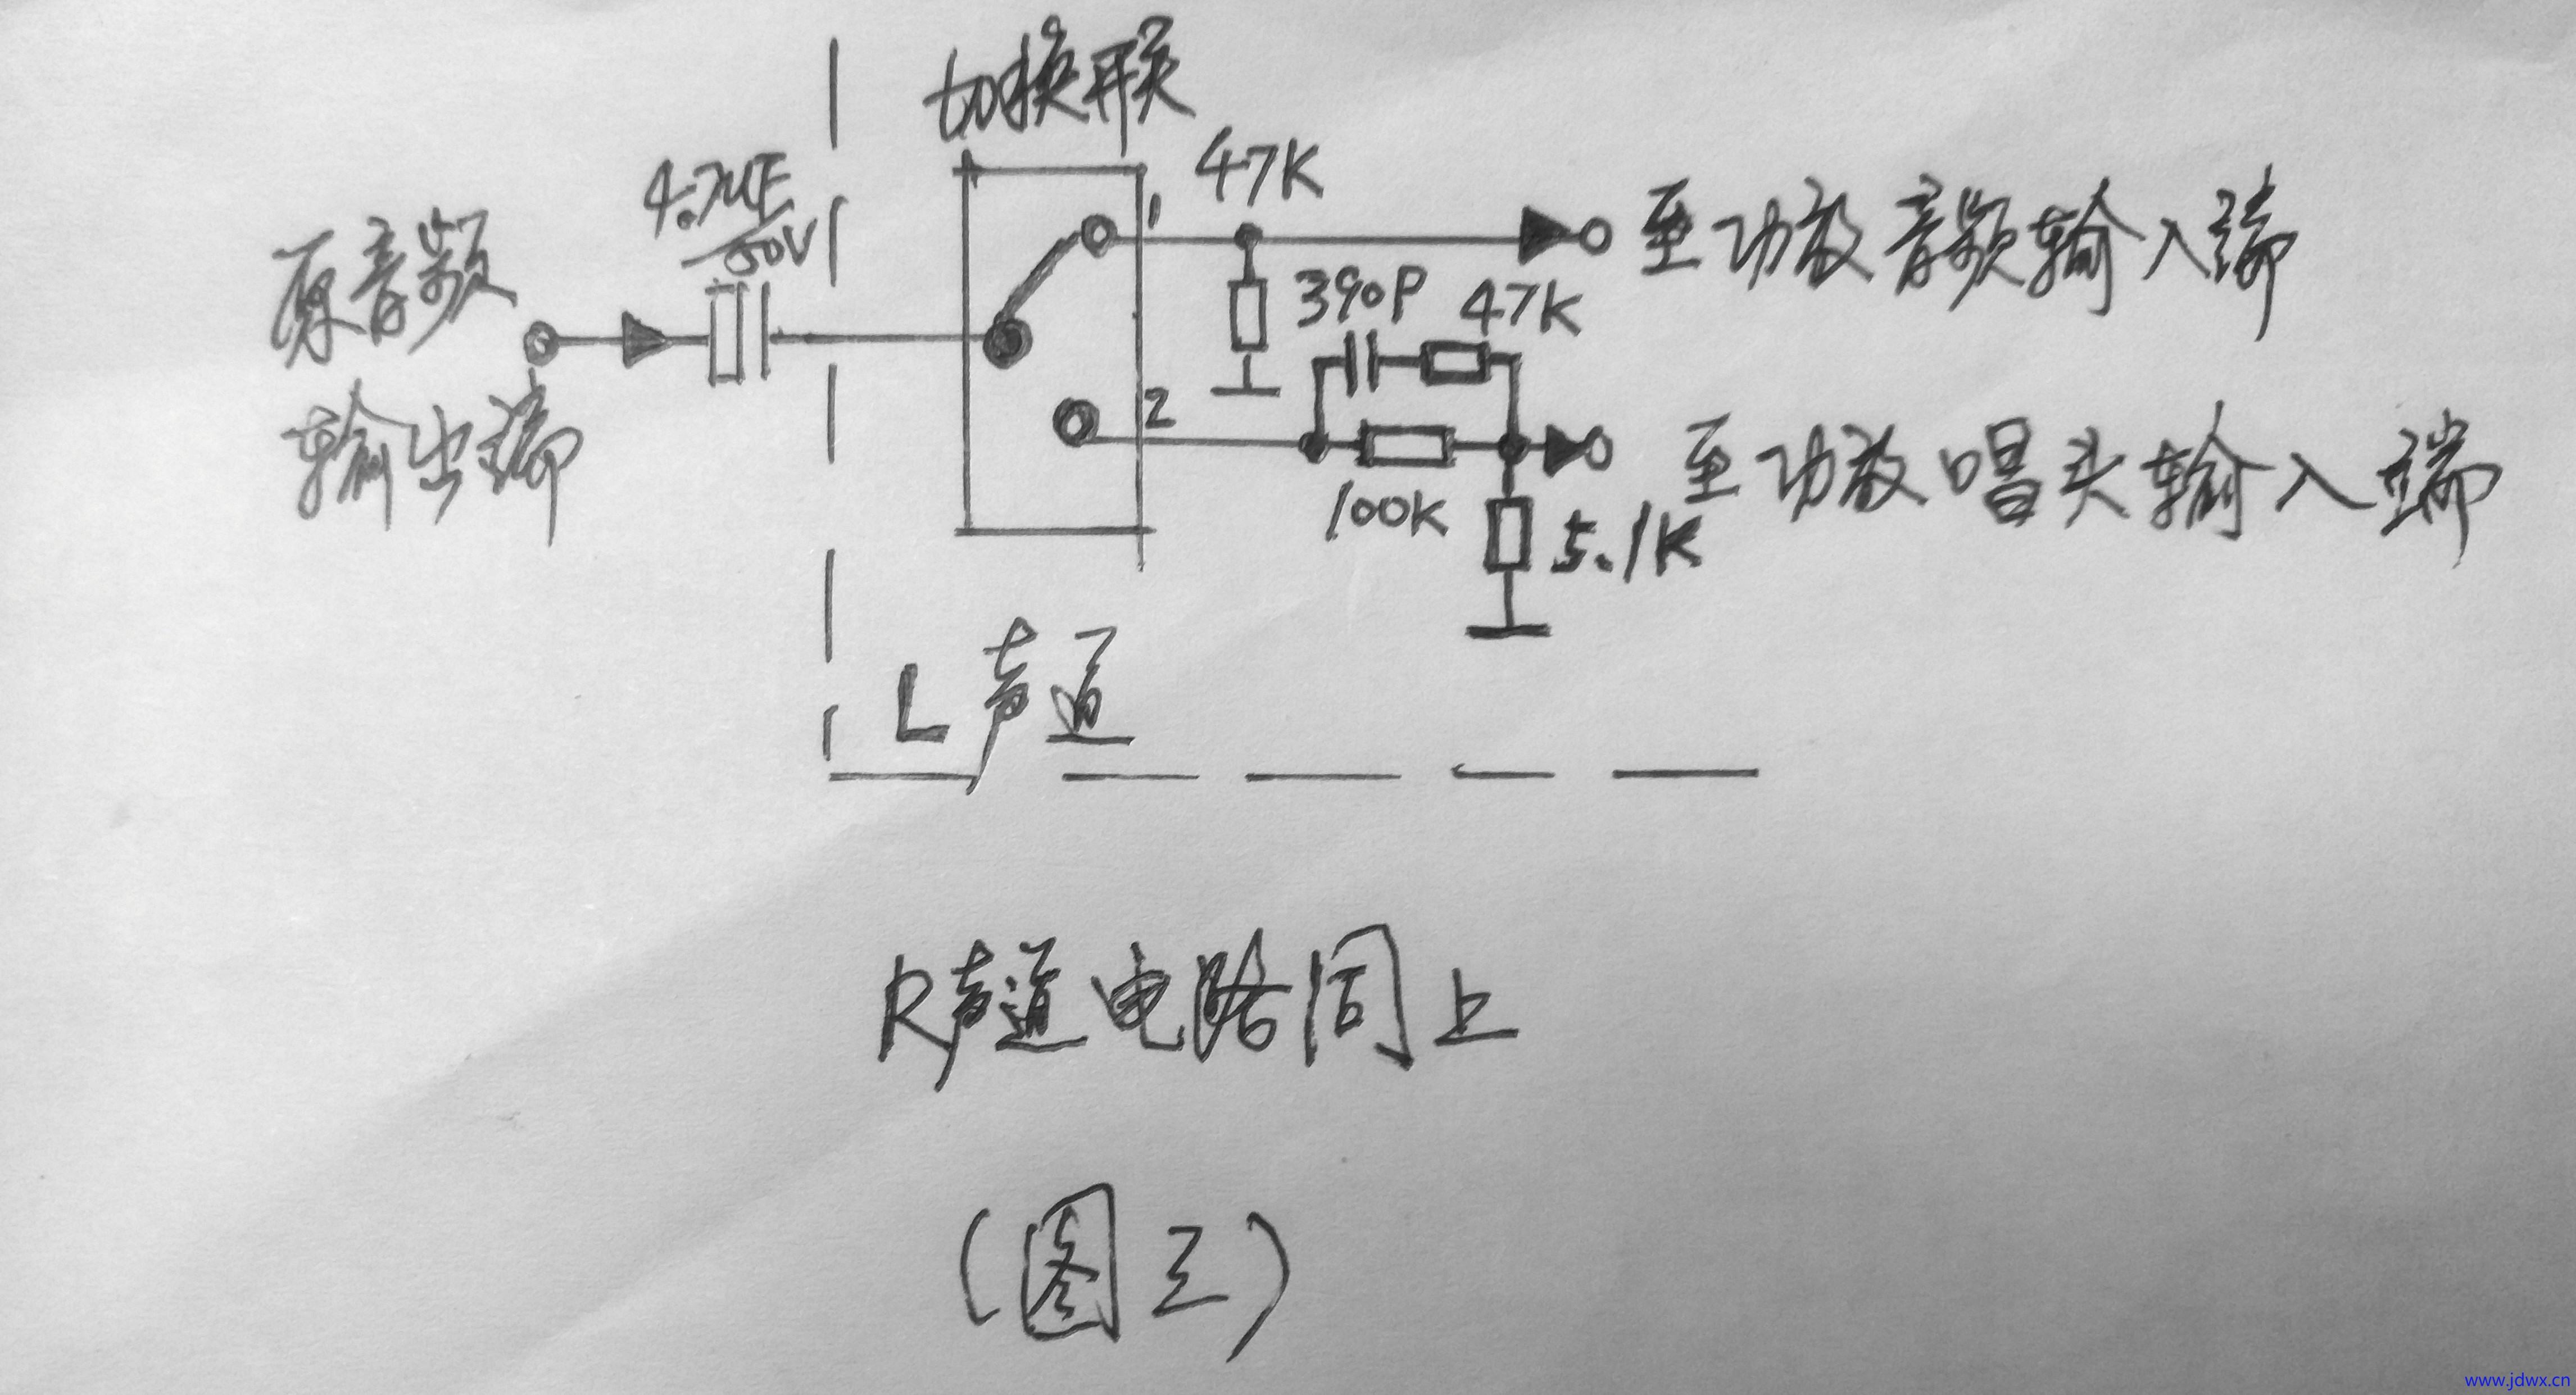 切换联
原音频
输出端
4.7UF
50V
1
47K
至功放音频输入端
390P
47K
2
100K
至功放唱头输入端
5.1K
L声道
R声道电路同上
(图三)
www.jdwx.cn